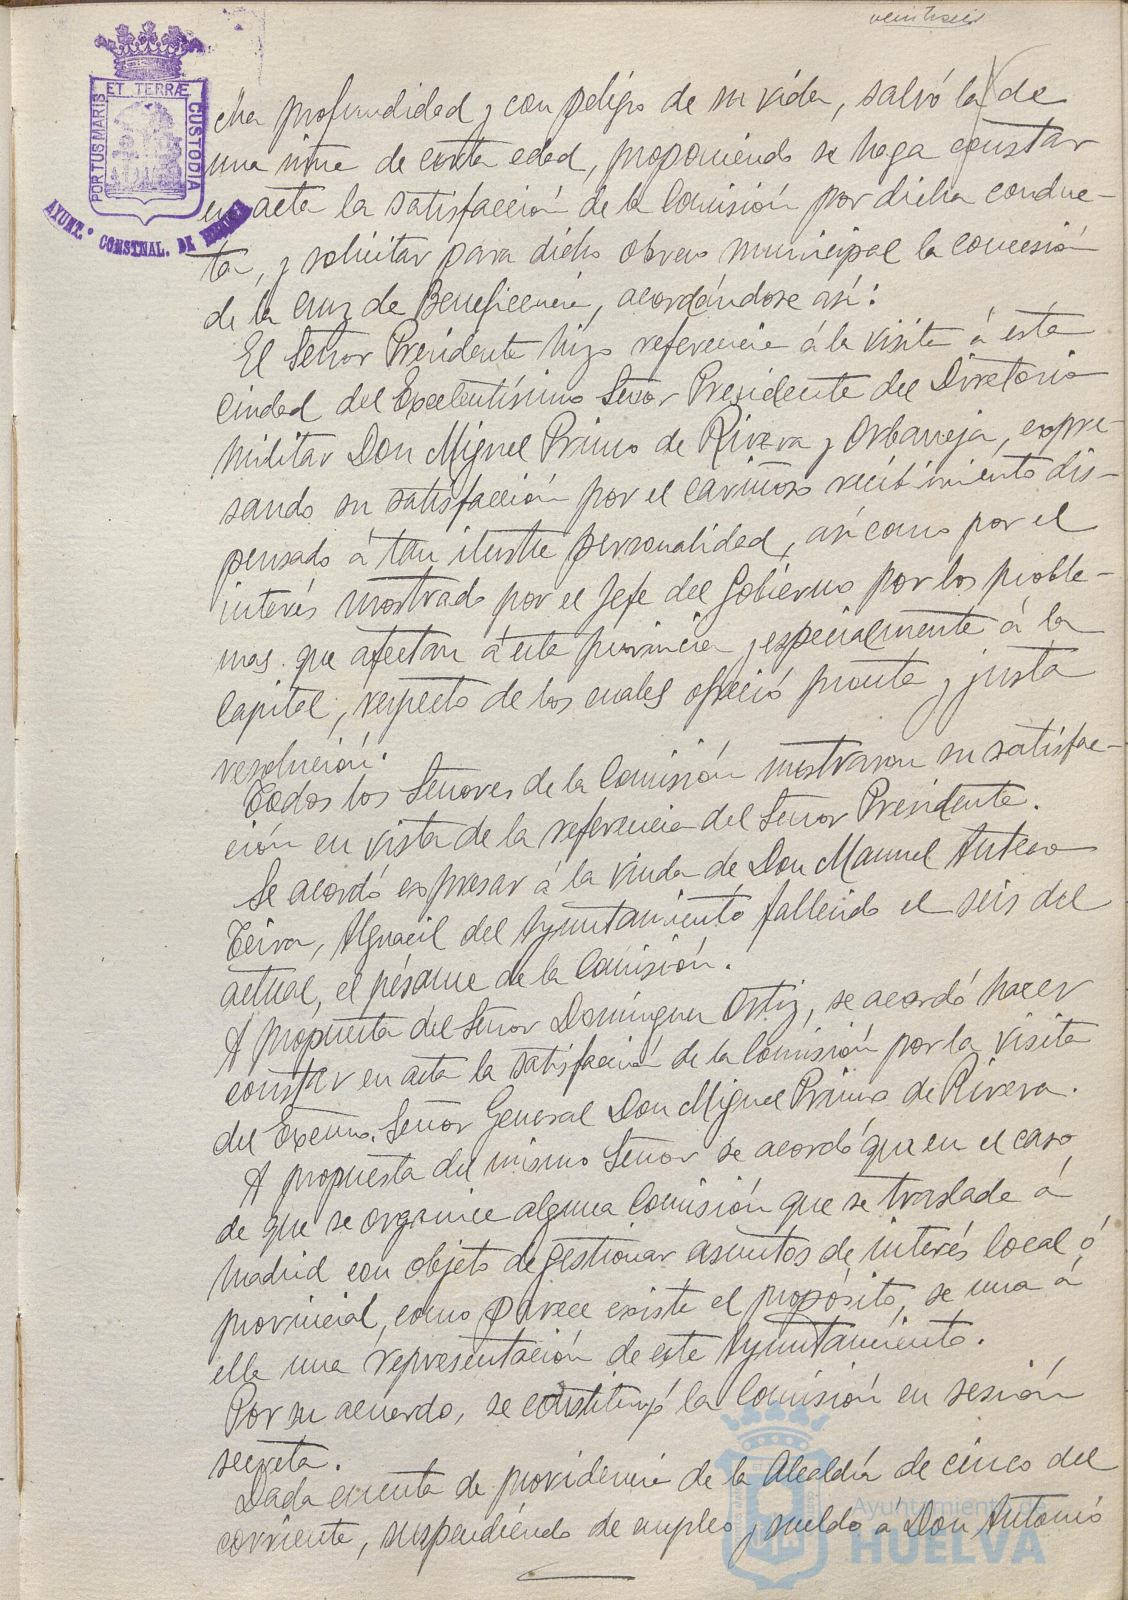 ET TERRÆ
PORTUS MARIS
CUSTODIA
AYUNT.º CONSTNAL. DE HUELVA
cha profundidad y con peligro de su vida, salvó la de
una niña de corta edad, proponiendo se haga constar
en acta la satisfacción de la Comisión por dicha conduc-
ta, y solicitar para dicho obrero municipal la concesión
de la cruz de Beneficencia, acordándose así:
El Señor Presidente hizo referencia á la visita á esta
Ciudad del Excelentísimo Señor Presidente del Diretorio
Militar Don Miguel Primo de Rivera y Orbaneja, expre-
sando su satisfacción por el cariñoso recibimiento dis-
pensado á tan ilustre personalidad, así como por el
interés mostrado por el Jefe del Gobierno por los proble-
mas que afectan á esta provincia y especialmente á la
Capital, respecto de los cuales ofreció pronta y justa
resolución.
Todos los Señores de la Comisión mostraron su satisfac-
ción en vista de la referencia del Señor Presidente.
Se acordó expresar á la viuda de Don Manuel Antero
Teira, Alguacil del Ayuntamiento fallecido el seis del
actual, el pésame de la Comisión.
A propuesta del Señor Domínguez Ortiz, se acordó hacer
constar en acta la satisfacción de la Comisión por la visita
del Excmo. Señor General Don Miguel Primo de Rivera.
A propuesta del mismo Señor se acordó que en el caso
de que se organice alguna Comisión que se traslade á
Madrid con objeto de gestionar asuntos de interés local ó
provincial, como parece existe el propósito, se una á
ella una representación de este Ayuntamiento.
Por su acuerdo, se constituyó la Comisión en sesión
secreta.
Dada cuenta de providencia de la Alcaldía de cinco del
corriente, suspendiendo de empleo y sueldo á Don Antonio
Ayuntamiento de
HUELVA